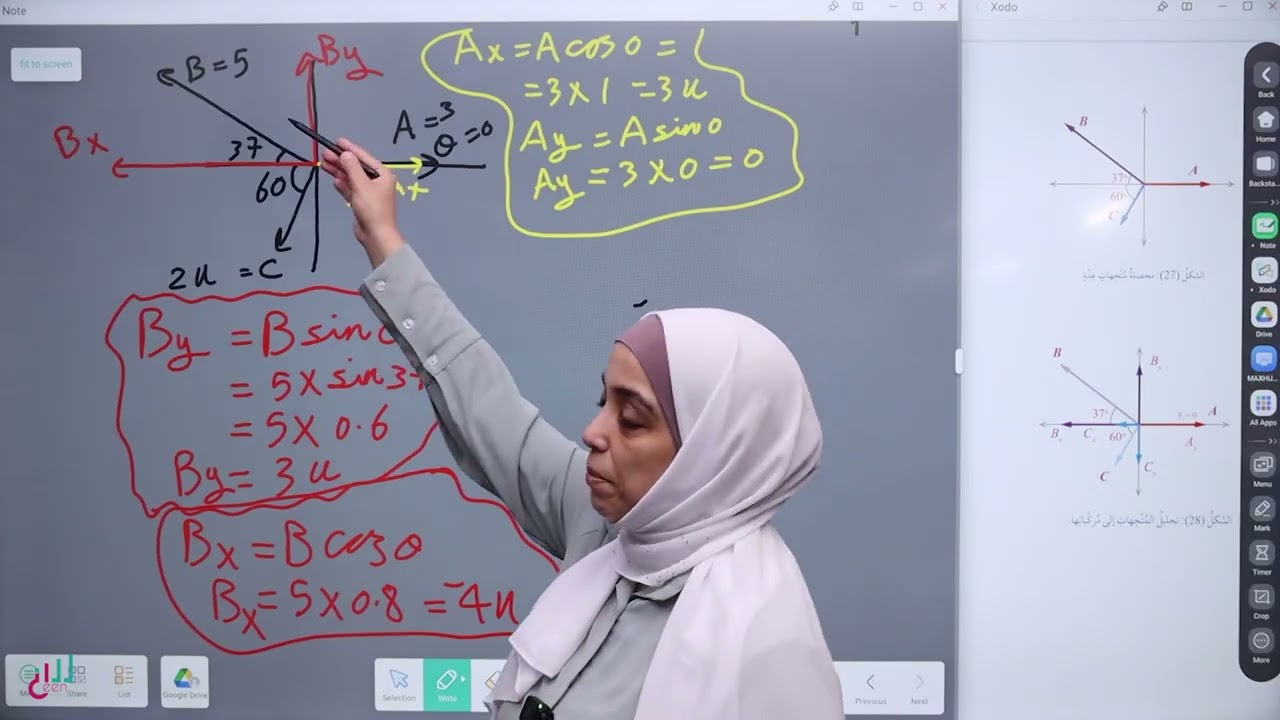 Note
Xodo
fit to screen
B = 5
By
Bx
37
60
A = 3
θ = 0
Ax
2u = C
Ax = A cos 0 =
= 3 x 1 = 3u
Ay = A sin 0
Ay = 3 x 0 = 0
By = B sin
= 5 x sin 37
= 5 x 0.6
By = 3u
Bx = B cos θ
Bx = 5 x 0.8 = -4u
B
A
37°
60°
C
الشكل (27): محصلة متجهات عدة
B
B
37°
A
B
C
60°
A
C
C
الشكل (28): تحليل المتجهات إلى مركباتها.
Back
Home
Backsta...
Note
Xodo
Drive
MAXHU...
All Apps
Menu
Mark
Timer
Crop
More
Share
List
Google Drive
Selection
Write
Previous
Next
een